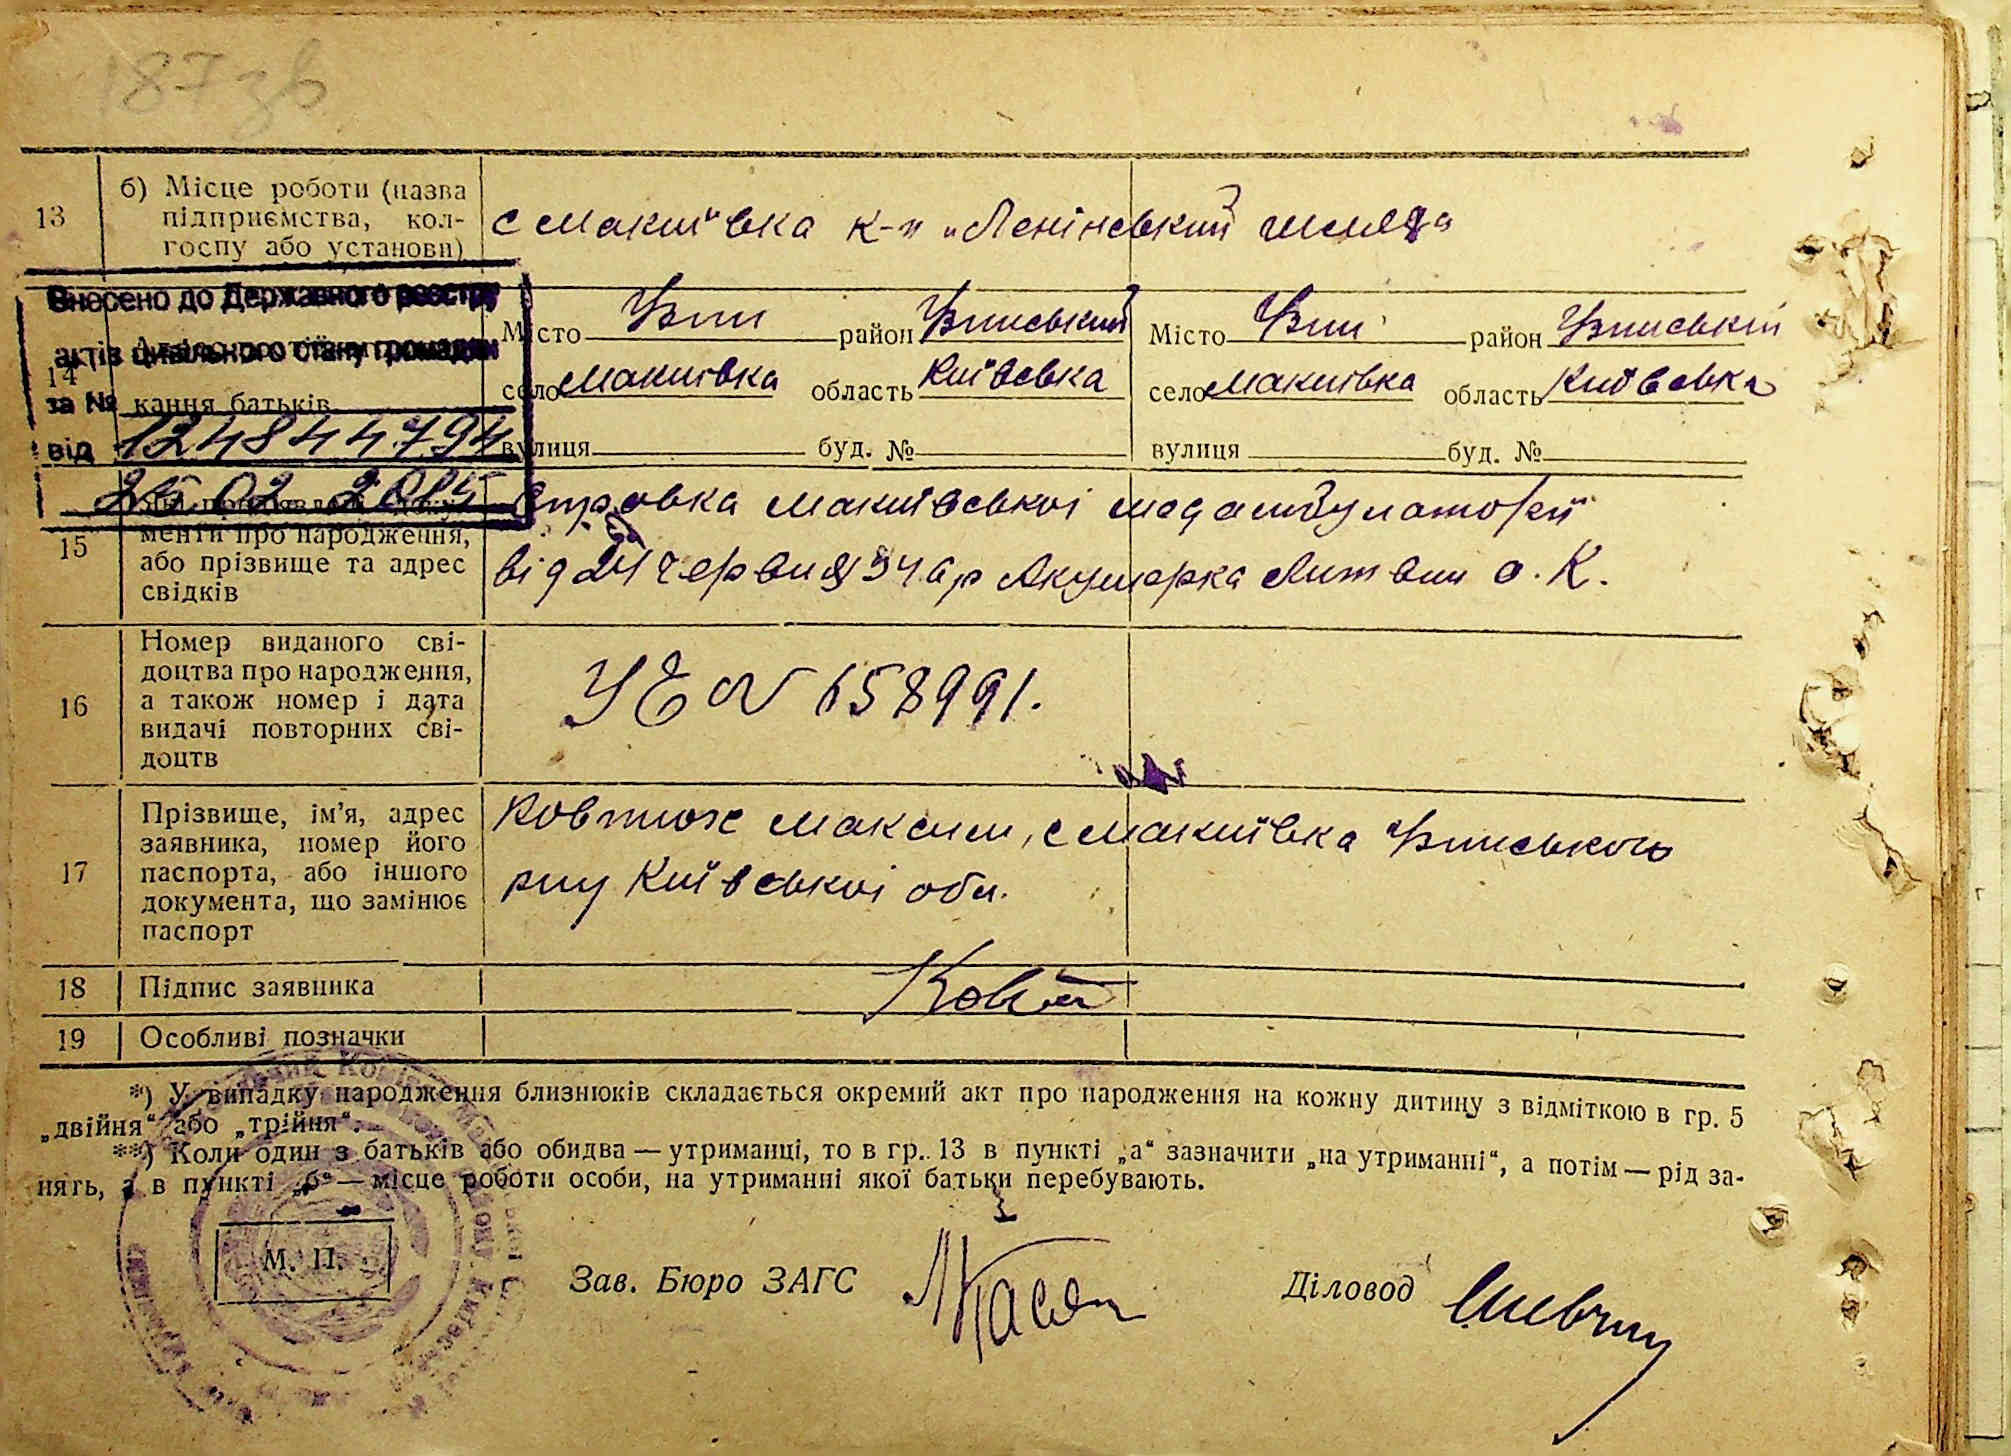 187 зв
13
б) Місце роботи (назва
підприємства, кол-
госпу або установи)
с Макиївка к-п „Ленінський шлях"
Внесено до Державного реєстру
актів цивільного стану громадян
за №
від 12484 4794
02
14
кання батьків
Місто район
село Макиївка область Київська
вулиця буд. №
Місто район
село Макиївка область Київська
вулиця буд. №
15
менти про народження,
або прізвище та адрес
свідків
Справка Макиївської медамбулаторії
від 24 червня Акушерка Литвин О. К.
16
Номер виданого сві-
доцтва про народження,
а також номер і дата
видачі повторних сві-
доцтв
УЕ № 658991.
17
Прізвище, ім'я, адрес
заявника, номер його
паспорта, або іншого
документа, що замінює
паспорт
Ковтюх Максим, с Макиївка
р-ну Київської обл.
18
Підпис заявника
19
Особливі позначки
*) У випадку народження близнюків складається окремий акт про народження на кожну дитину з відміткою в гр. 5
„двійня“ або „трійня“.
**) Коли один з батьків або обидва — утриманці, то в гр. 13 в пункті „а“ зазначити „на утриманні“, а потім — рід за-
нять, а в пункті „б“ — місце роботи особи, на утриманні якої батьки перебувають.
М. П.
Зав. Бюро ЗАГС
Діловод